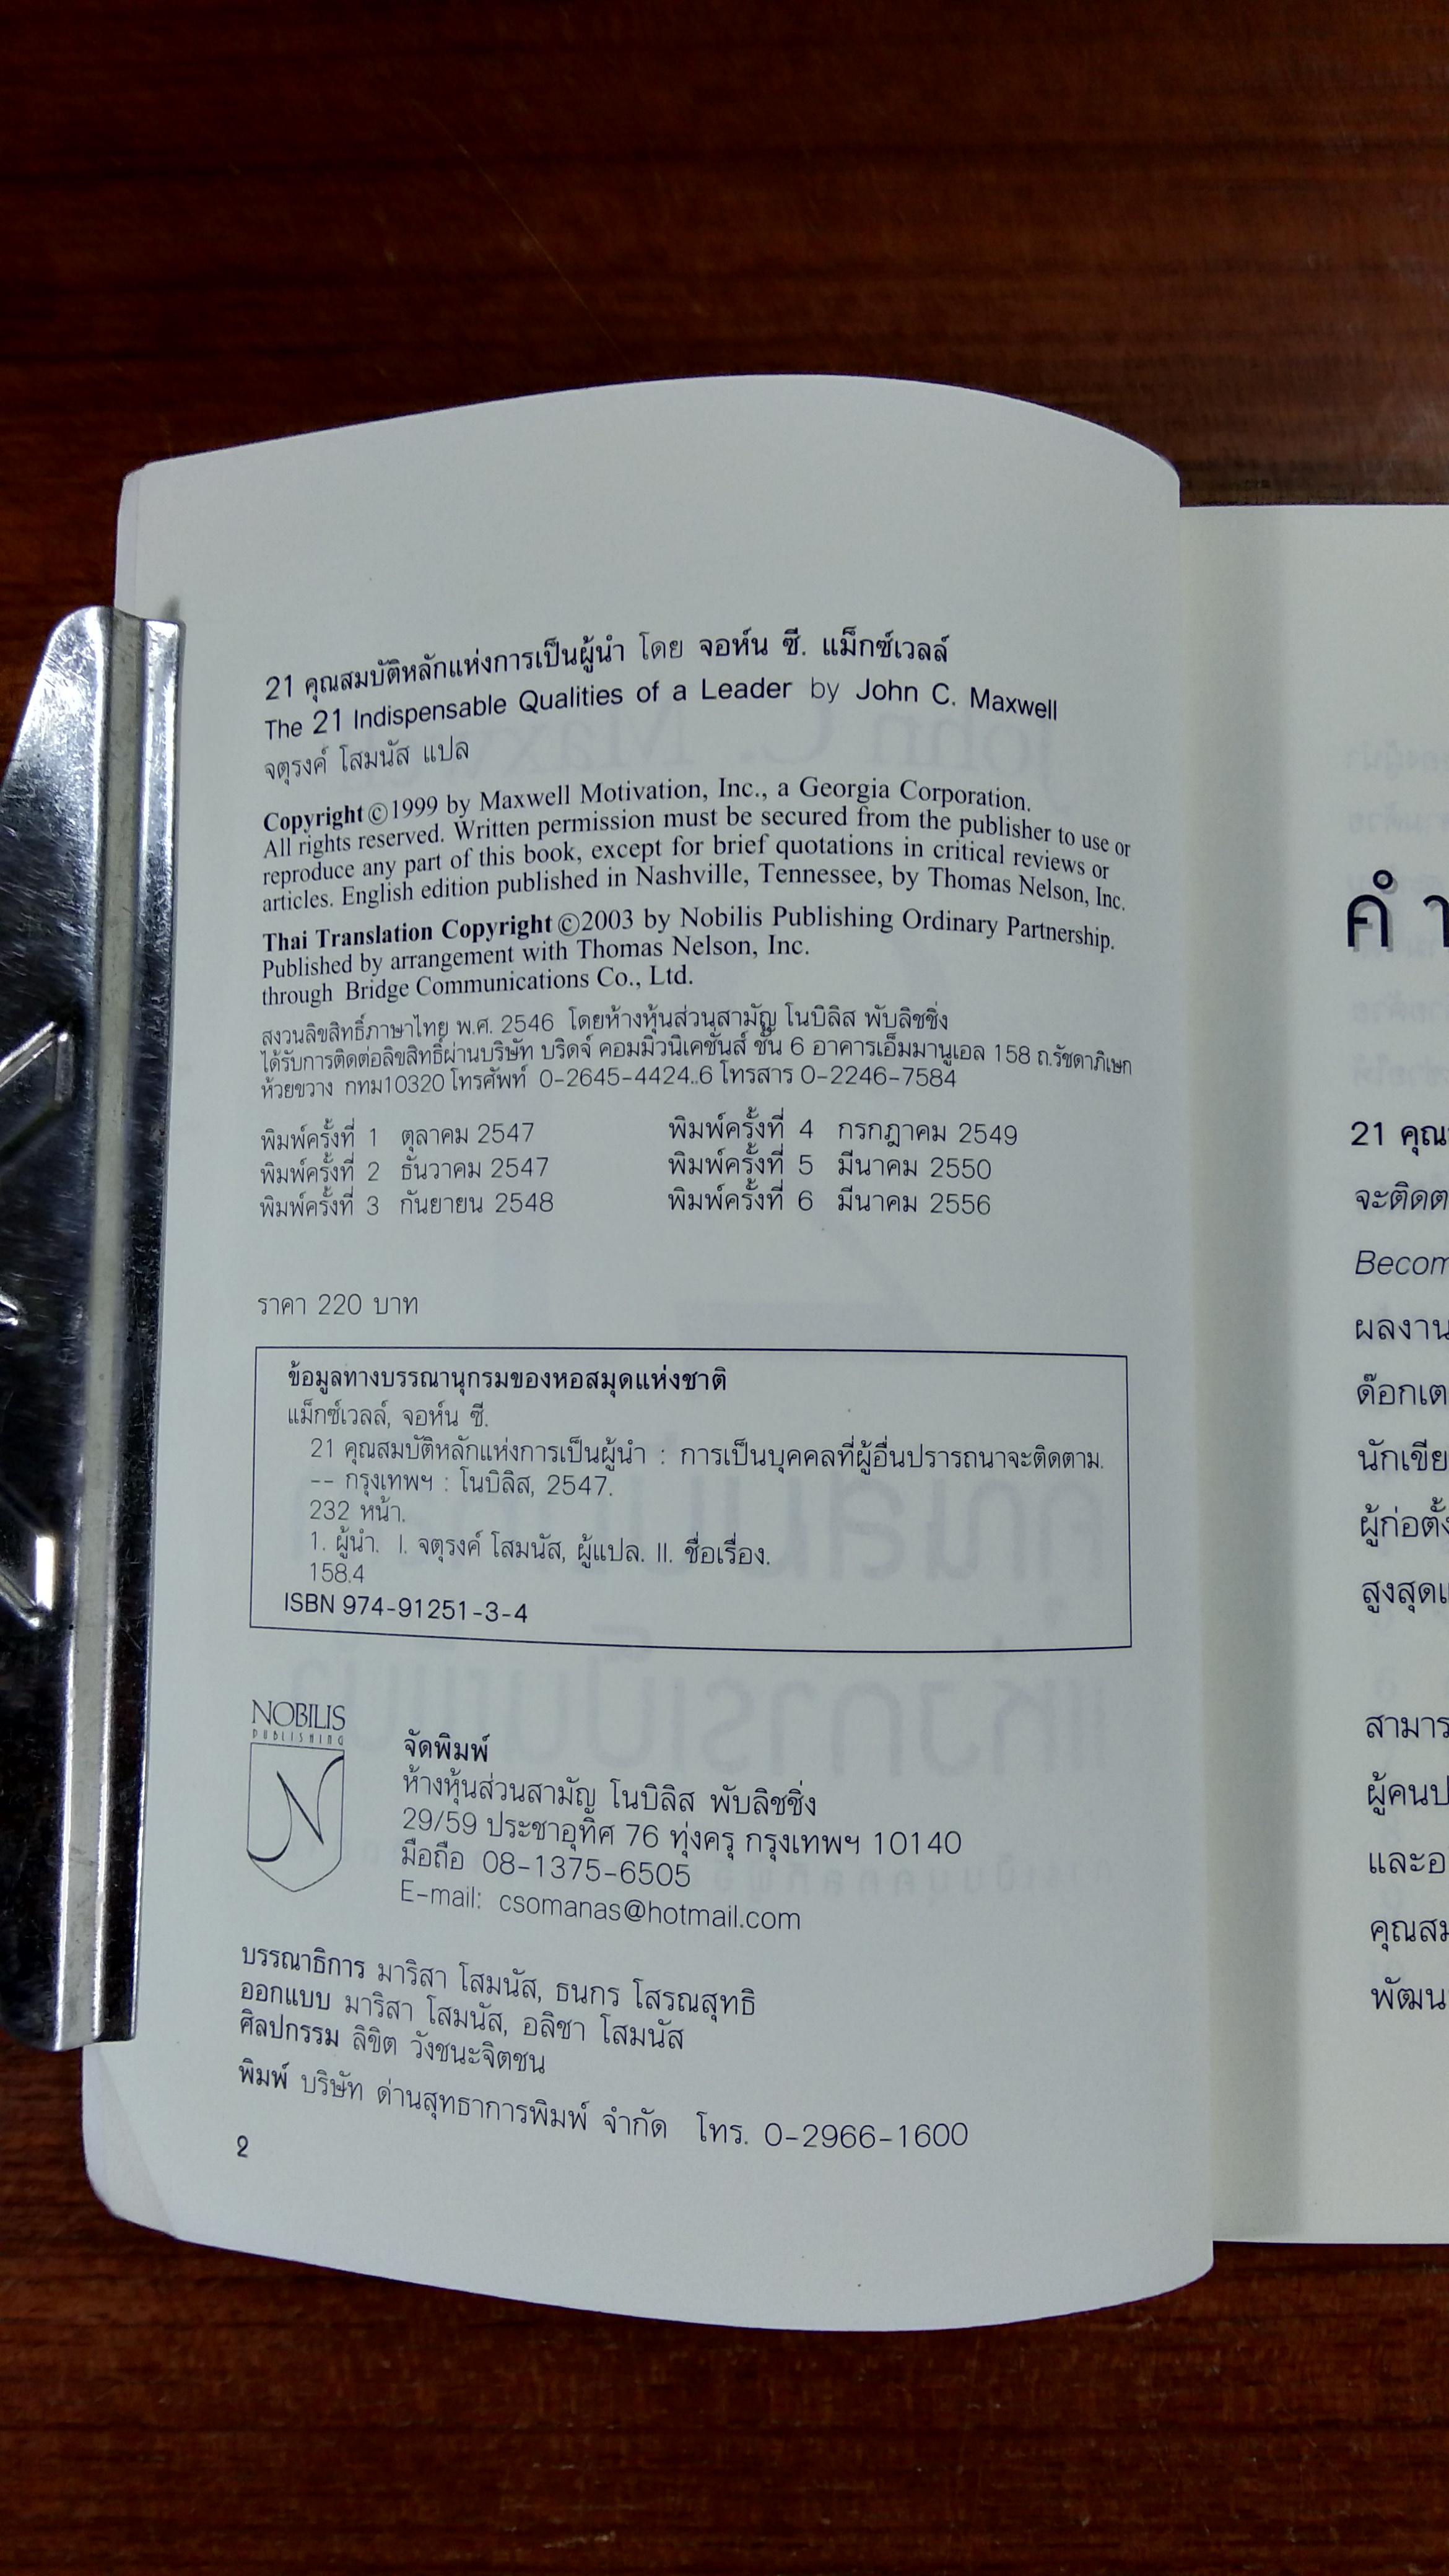 21 คุณสมบัติหลักแห่งการเป็นผู้นำ โดย จอห์น ซี. แม็กซ์เวลล์
The 21 Indispensable Qualities of a Leader by John C. Maxwell
จตุรงค์ โสมนัส แปล
Copyright ©1999 by Maxwell Motivation, Inc., a Georgia Corporation.
All rights reserved. Written permission must be secured from the publisher to use or
reproduce any part of this book, except for brief quotations in critical reviews or
articles. English edition published in Nashville, Tennessee, by Thomas Nelson, Inc.
Thai Translation Copyright ©2003 by Nobilis Publishing Ordinary Partnership.
Published by arrangement with Thomas Nelson, Inc.
through Bridge Communications Co., Ltd.
สงวนลิขสิทธิ์ภาษาไทย พ.ศ. 2546 โดยห้างหุ้นส่วนสามัญ โนบิลิส พับลิชชิ่ง
ได้รับการติดต่อลิขสิทธิ์ผ่านบริษัท บริดจ์ คอมมิวนิเคชั่นส์ ชั้น 6 อาคารเอ็มมานูเอล 158 ถ.รัชดาภิเษก
ห้วยขวาง กทม10320 โทรศัพท์ 0-2645-4424..6 โทรสาร 0-2246-7584
พิมพ์ครั้งที่ 1 ตุลาคม 2547
พิมพ์ครั้งที่ 2 ธันวาคม 2547
พิมพ์ครั้งที่ 3 กันยายน 2548
พิมพ์ครั้งที่ 4 กรกฎาคม 2549
พิมพ์ครั้งที่ 5 มีนาคม 2550
พิมพ์ครั้งที่ 6 มีนาคม 2556
ราคา 220 บาท
ข้อมูลทางบรรณานุกรมของหอสมุดแห่งชาติ
แม็กซ์เวลล์, จอห์น ซี.
21 คุณสมบัติหลักแห่งการเป็นผู้นำ : การเป็นบุคคลที่ผู้อื่นปรารถนาจะติดตาม.
-- กรุงเทพฯ : โนบิลิส, 2547.
232 หน้า.
1. ผู้นำ. I. จตุรงค์ โสมนัส, ผู้แปล. II. ชื่อเรื่อง.
158.4
ISBN 974-91251-3-4
NOBILIS
PUBLISHING
N
จัดพิมพ์
ห้างหุ้นส่วนสามัญ โนบิลิส พับลิชชิ่ง
29/59 ประชาอุทิศ 76 ทุ่งครุ กรุงเทพฯ 10140
มือถือ 08-1375-6505
E-mail: csomanas@hotmail.com
บรรณาธิการ มาริสา โสมนัส, ธนกร โสรณสุทธิ
ออกแบบ มาริสา โสมนัส, อลิชา โสมนัส
ศิลปกรรม ลิขิต วังชนะจิตชน
พิมพ์ บริษัท ด่านสุทธาการพิมพ์ จำกัด โทร. 0-2966-1600
2
คำ
21 คุณ
จะติดต
Becom
ผลงาน
ด๊อกเต
นักเขีย
ผู้ก่อตั้ง
สูงสุดแ
สามาร
ผู้คนป
และอ
คุณสม
พัฒน